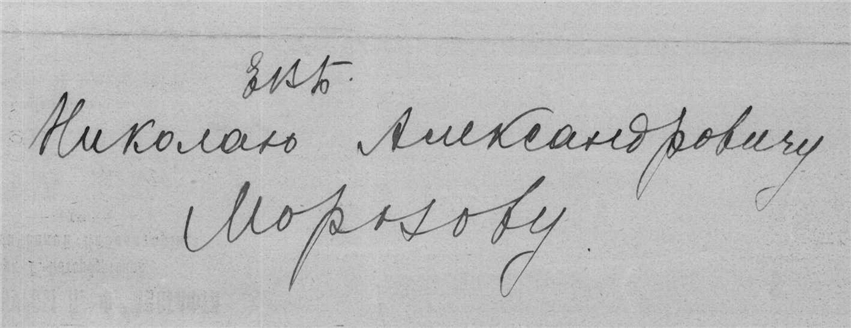 ЕВБ.
Николаю Александровичу
Морозову.